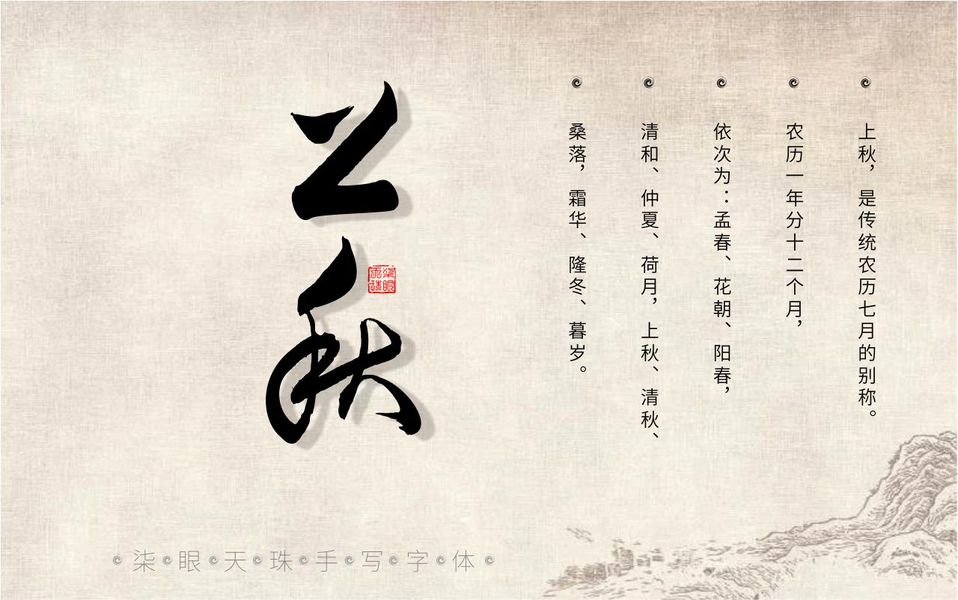 上秋
柒眼天珠
上秋，是传统农历七月的别称。
农历一年分十二个月，
依次为：孟春、花朝、阳春，
清和、仲夏、荷月，上秋、清秋、
桑落，霜华、隆冬、暮岁。
柒眼天珠手写字体